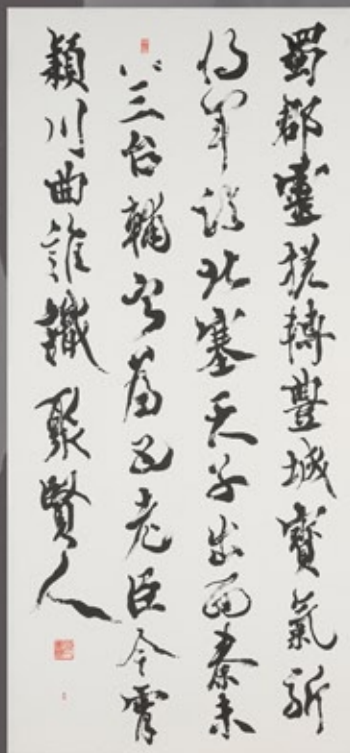 蜀郡靈槎轉豐城寶氣新
將軍臨北塞天子出西秦未
以三台輔寧為五老臣今宵
潁川曲誰識聚賢人